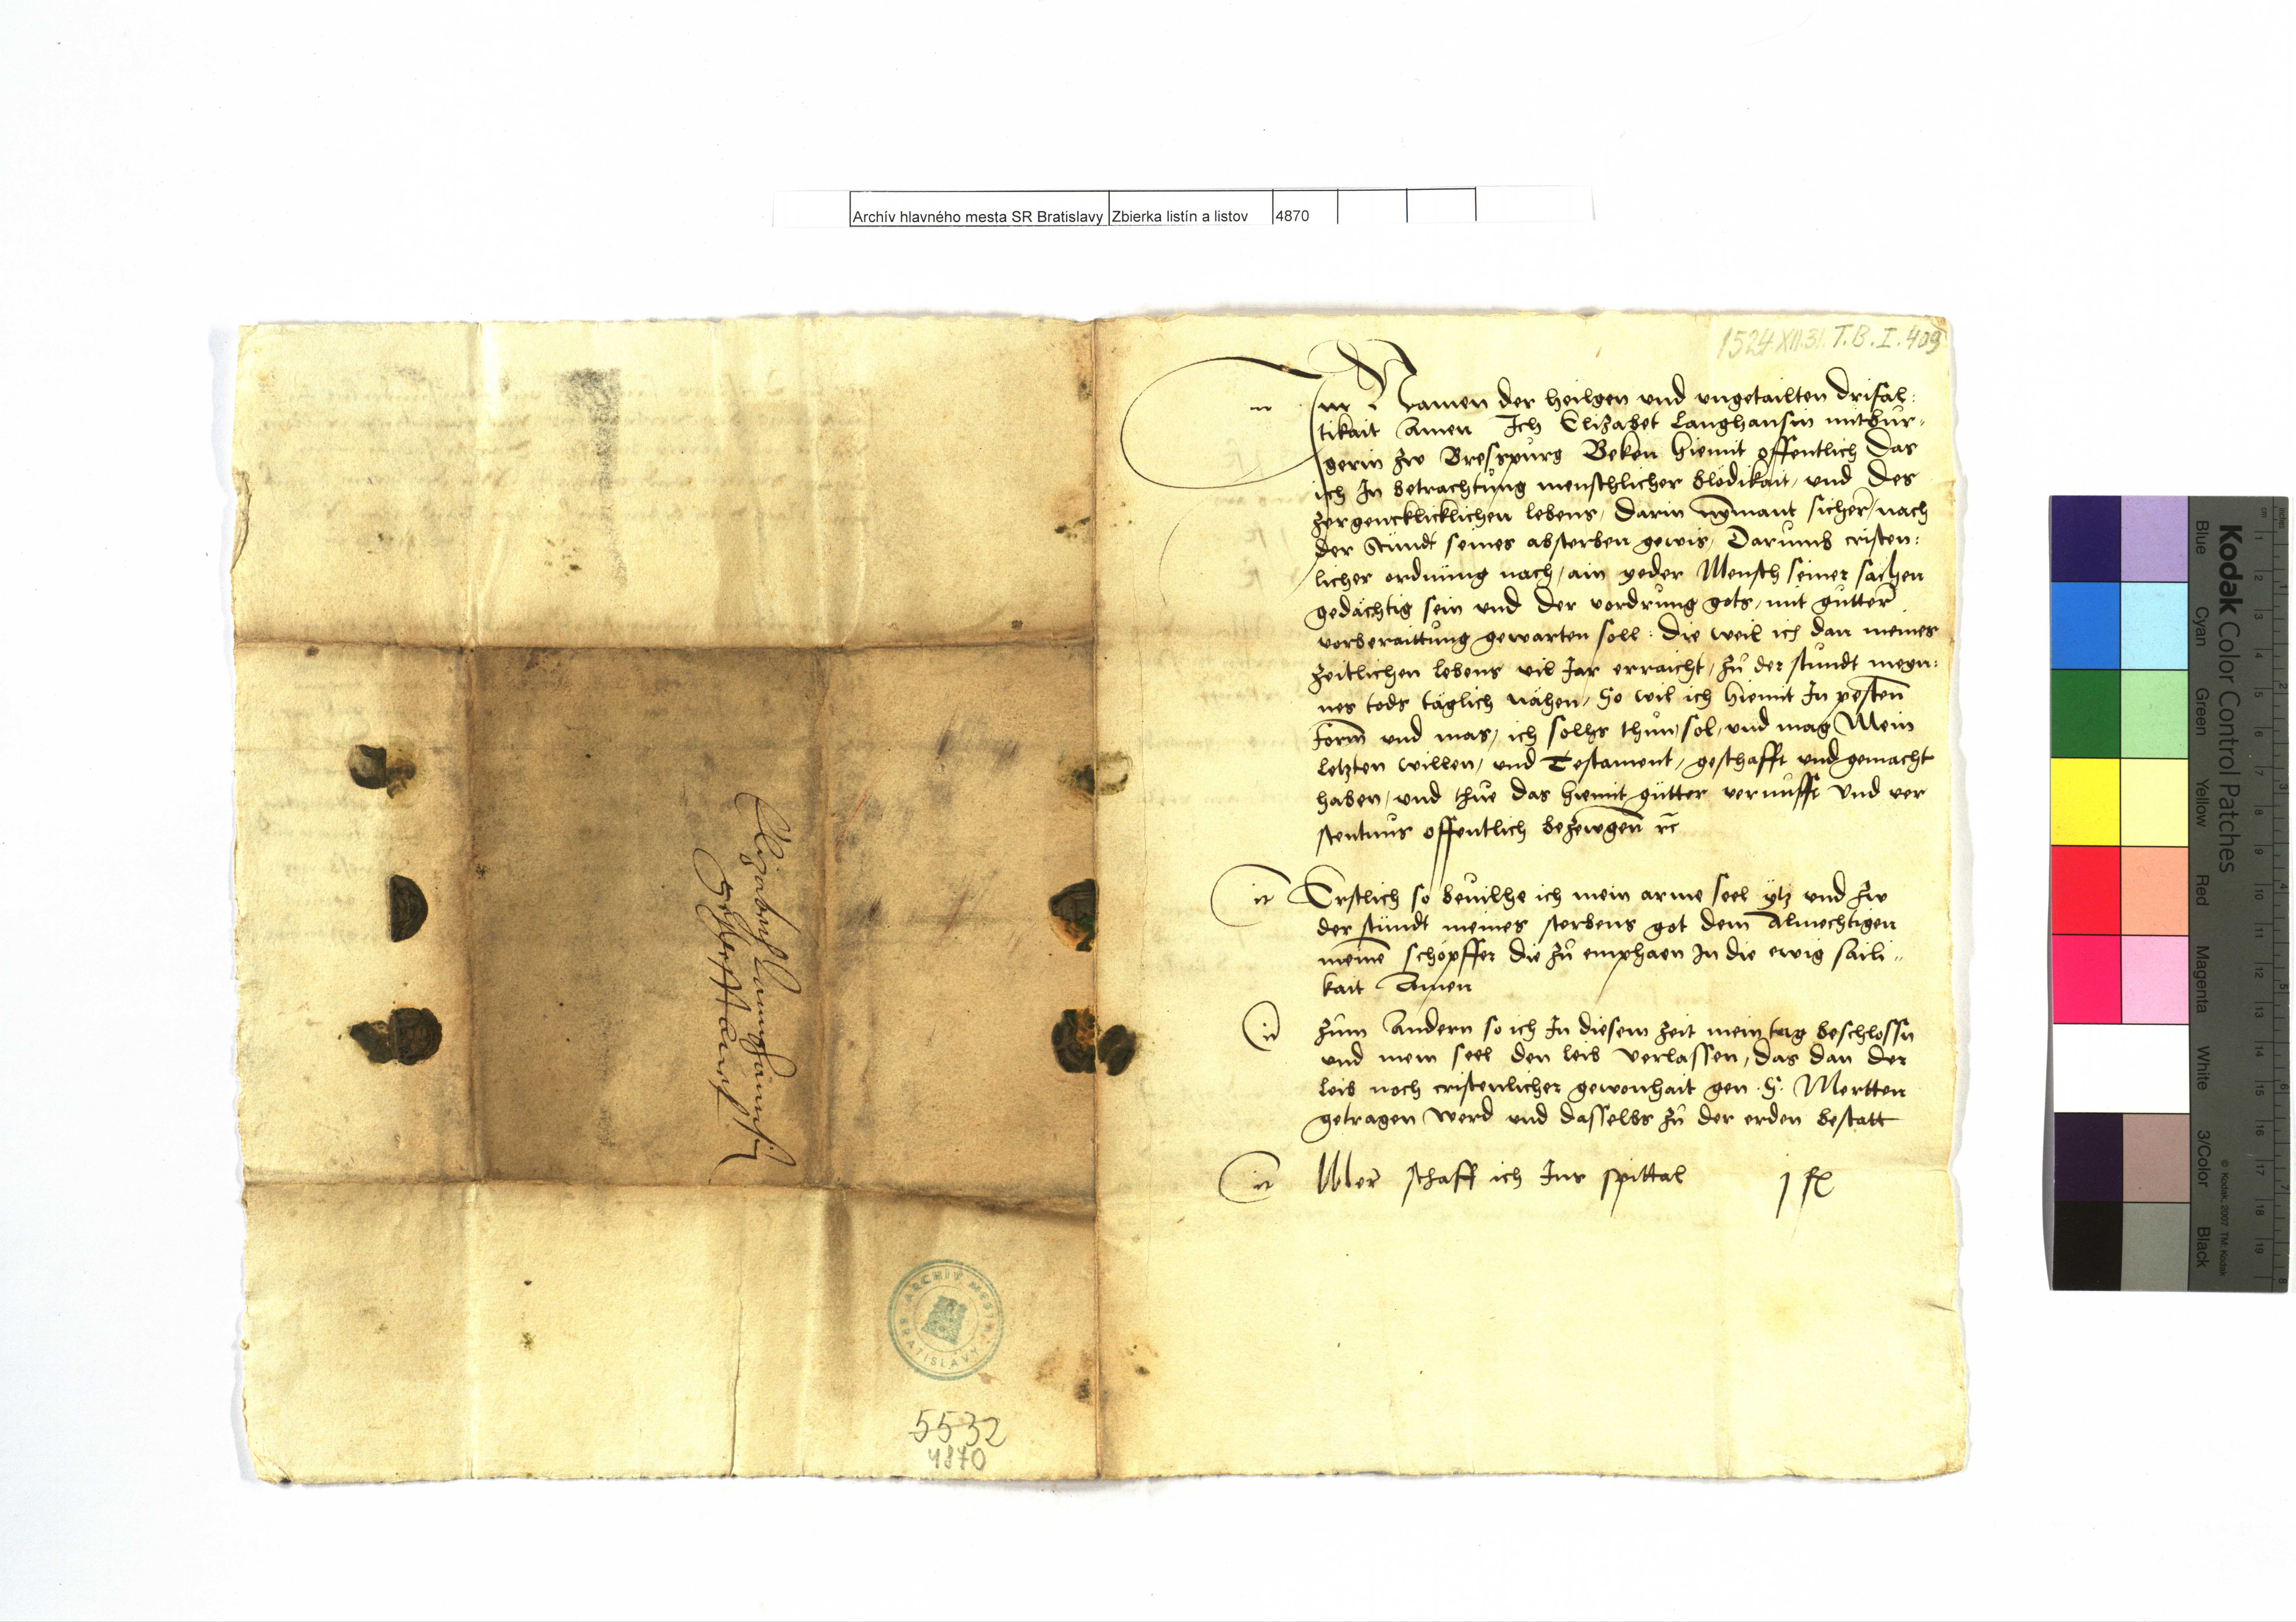 Archív hlavného mesta SR Bratislavy Zbierka listín a listov 4870
1524 XII. 31. T. B. I. 409
Im Namen der heilgen und ungetailten drifal:
tikait Amen Ich Elizabet Langhansin mitbur-
gerin zw Presspurg Beken hiemit offentlich das
ich In betrachtung menschlicher blödikait, und des
zergencklicklichen lebens, darin nymant sicher, nach
der Stundt seines absterben gewis, Darumb cristen:
licher ordnung nach, ain yeder Mensch seiner sachen
gedächtig sein und der vordrung gots, mit gutter
vorberaittung gewarten soll: die weil ich dan meines
zeitlichen lebens vil Jar erraicht, zu der stundt mey:
nes tods täglich nähen, So wil ich hiemit In pesten
form und mas, ich sollhs thun, sol, und mag Mein
letzten willen, und Testament, geschafft und gemacht
haben, und thue das hiemit gutter vernufft und ver
stentnus offentlich bezewgen rc
it Erstlich so bevilhe ich mein arme seel ytz und zw
der stundt meines sterbens got dem Almechtigen
meine schöpffer die zu emphaen In die ewig säili-
kait Amen
it zum Andern so ich In diesem zeit mein tag beschlossn
und mein seel den leib verlassen, das dan der
leib noch cristenlicher gewonhait gen S. Mertten
getragen werd und dasselbs zu der erden bestatt
it Mer schaff ich Ins spittal j fl
Elizabeth Lannghannsin
Geschefft
ARCHÍV MESTA BRATISLAVY
5532
4870